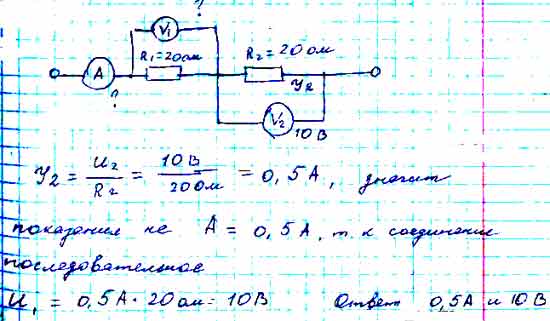 ?
V₁
A R₁=20ом R₂=20ом
? У₂
V₂ 10В
У₂ = U₂/R₂ = 10В/20ом = 0,5А, значит
показания не А = 0,5А, т к соединение
последовательное
U₁ = 0,5А · 20ом = 10В Ответ 0,5А и 10В